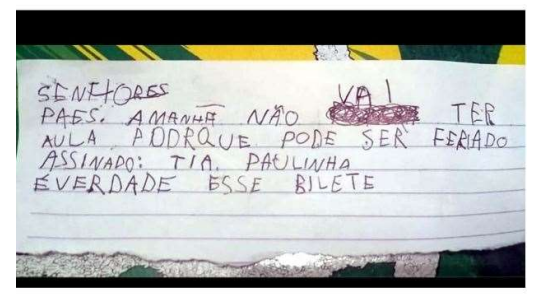 SENHORES
PAES. AMANHÃ NÃO VAI TER
AULA PODRQUE PODE SER FERIADO
ASSINADO: TIA PAULINHA
É VERDADE ESSE BILETE